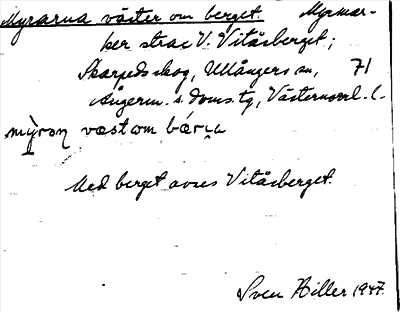 Myrarna väster om berget. Myrmar-
ker strax V. Vitåsberget;
Skarpeds skog, Ullångers sn, 71
Ångerm. s. doms. tg, Västernorrl. l.
mỳrəɳ væst om bárɩ̯a
Med berget avses Vitåsberget.
Sven Hiller 1947.